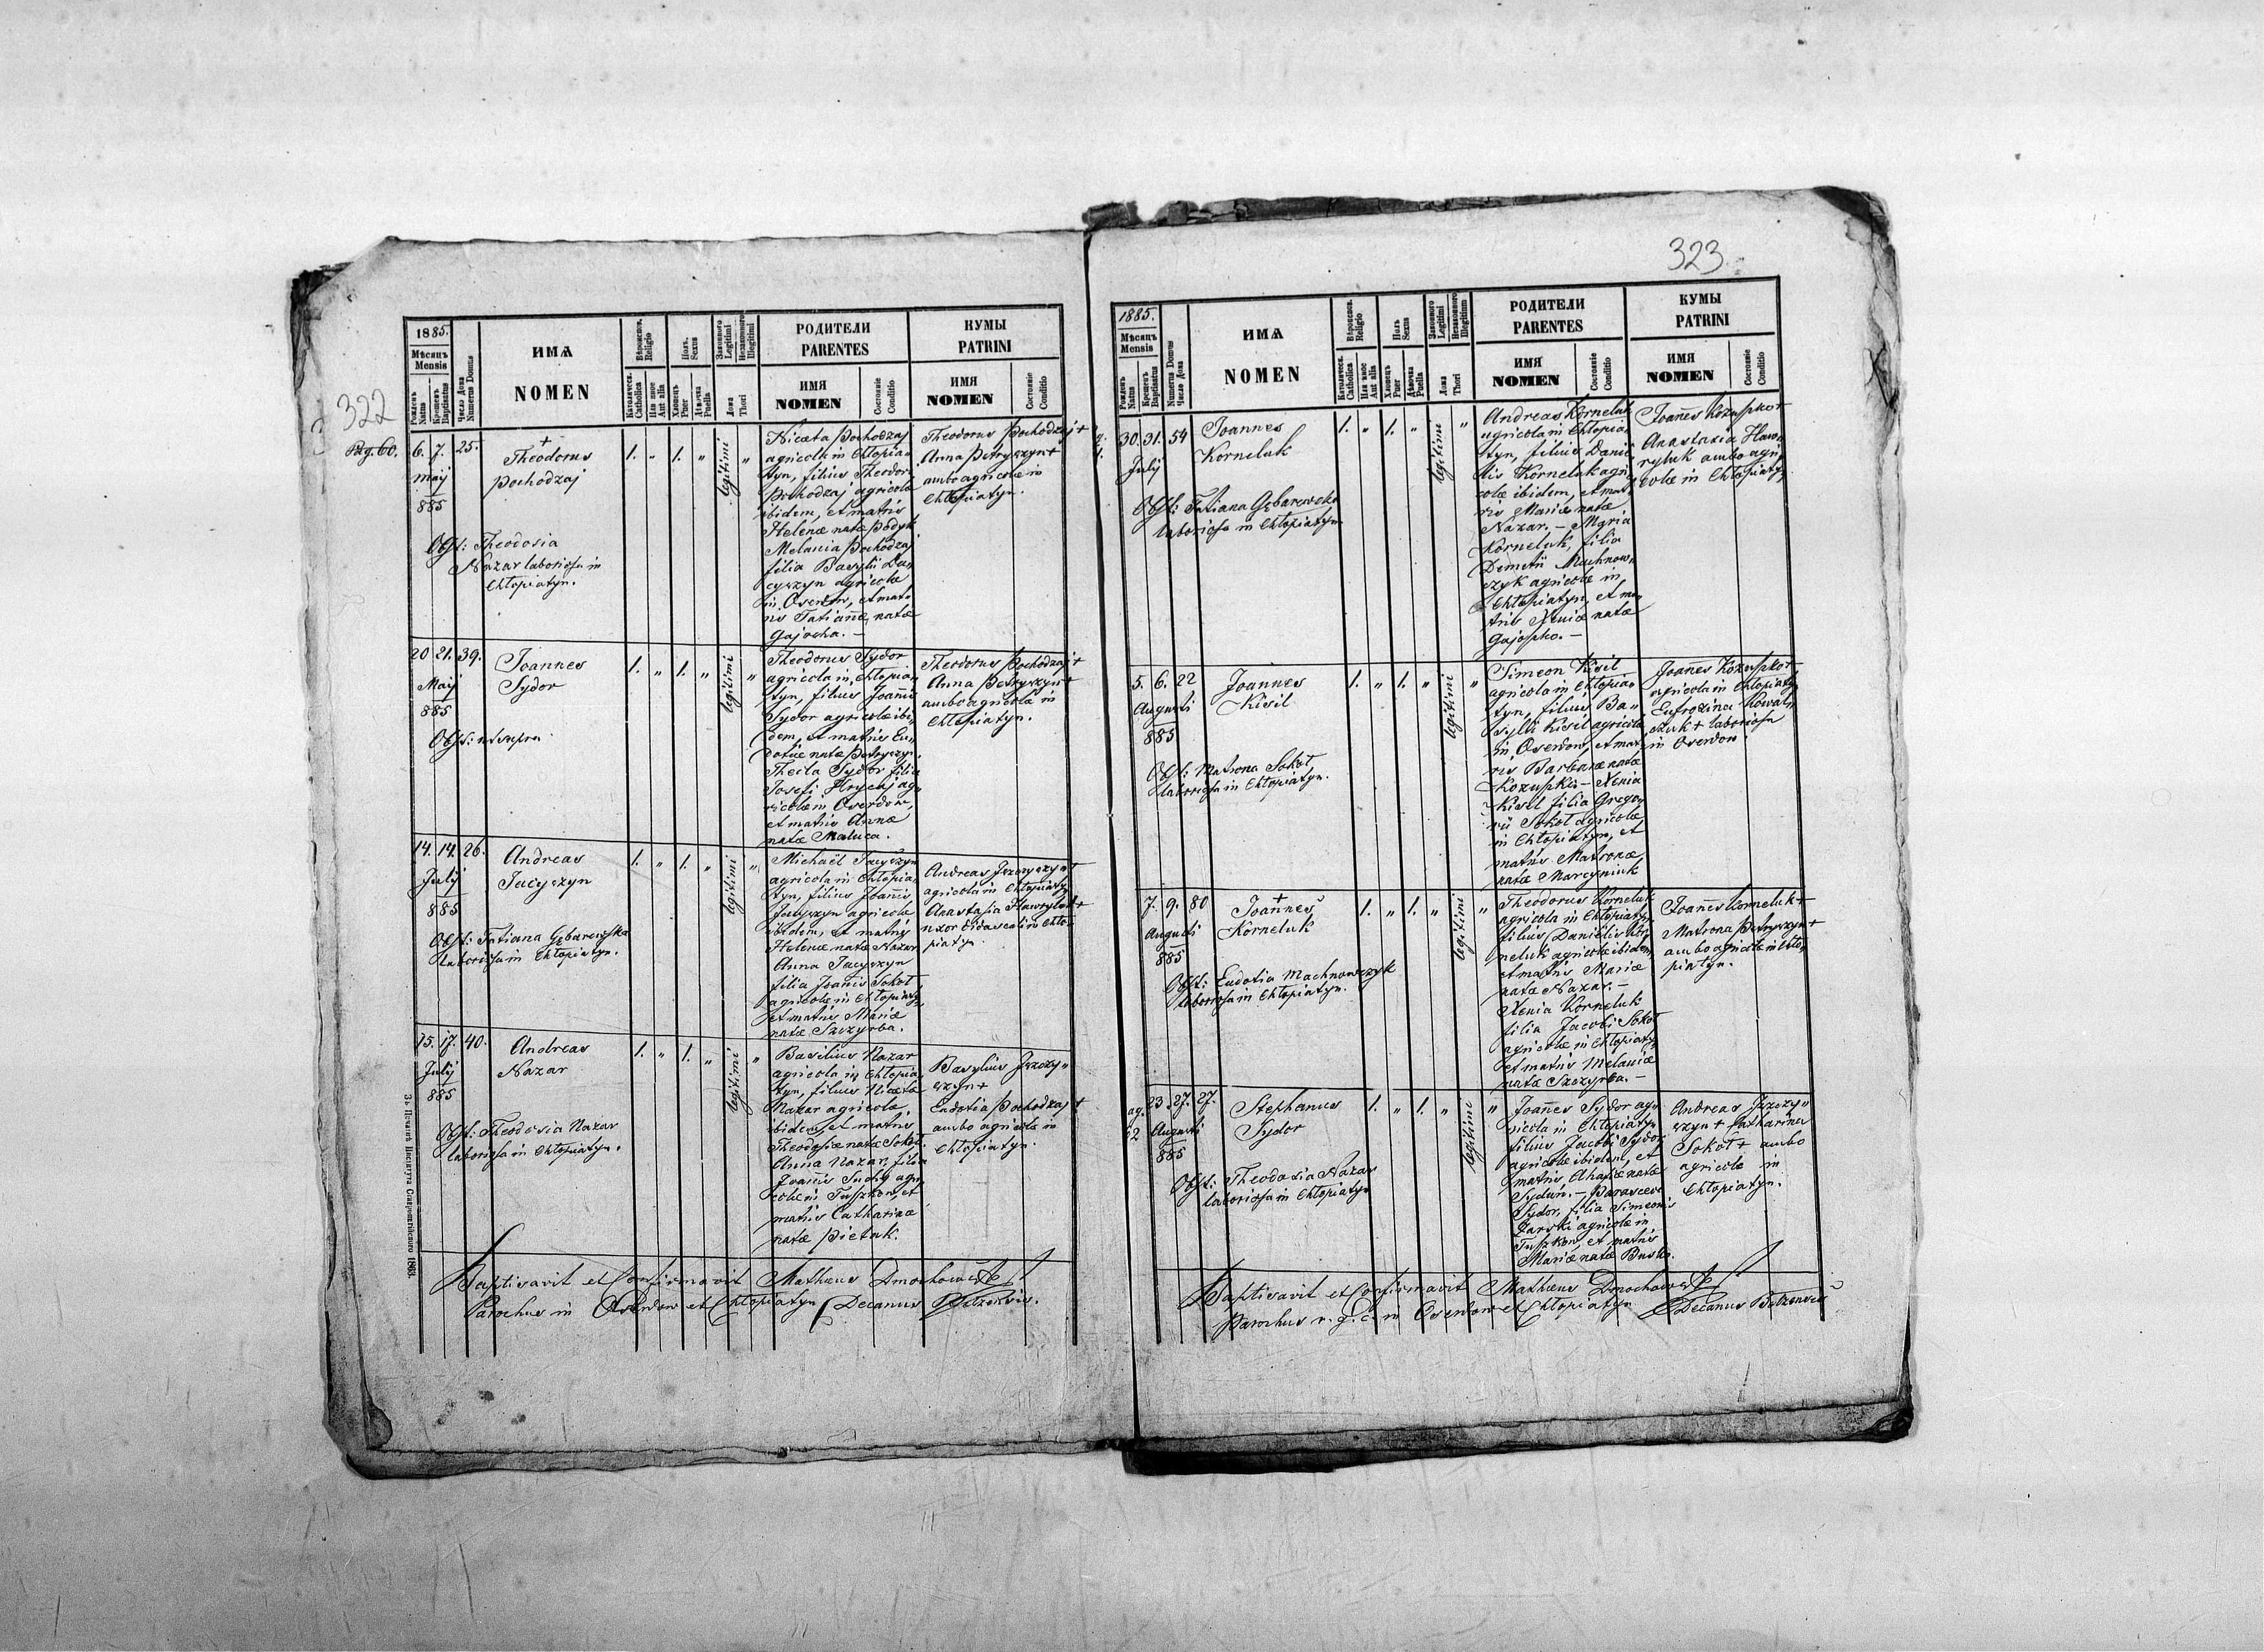 322
Pag. 60.
1885.
Мѣсяцъ
Mensis
Рожденъ
Natus
Крещенъ
Baptisatus
Число Дома
Numerus Domus
ИМѦ
NOMEN
Вѣроиспов.
Religio
Католическ.
Catholica
Или иное
Aut alia
Полъ.
Sexus
Хлопецъ
Puer
Дѣвочка
Puella
Законного
Legitimi
Незаконного
Illegitimi
Ложа
Thori
РОДИТЕЛИ
PARENTES
ИМЯ
NOMEN
Состояніе
Conditio
КУМЫ
PATRINI
ИМЯ
NOMEN
Состояніе
Conditio
6. 7. 25.
Maij
885
+
Theodorus
Pochodzaj
Obst: Theodosia
Nazar laboriosa in
Chłopiatyn.
1. " 1. " legitimi "
Nicæta Pochodzaj
agricola in Chłopia=
tyn, filius Theodori
Pochodzaj agricolæ
ibidem, et matris
Helenæ natæ
Melania Pochodzaj
filia Basylii Da=
cyszyn agricolæ
in Oserdow, et mat=
ris Tatiannæ, natæ
Gajocha. —
Theodorus Pochodzaj +
Anna Petryszyn +
ambo agricolæ in
Chłopiatyn.
20 21. 39.
Maij
885
Joannes
Sydor
Obst: ut supra.
1. " 1. " legitimi "
Theodorus Sydor
agricola in Chłopia=
tyn, filius Joannis
Sydor agricolæ ibi=
dem, et matris Eu=
dotiæ natæ Petryszyn.
Thecla Sydor filia
Josefi Hrycaj ag=
ricolæ in Oserdow,
et matris Annæ
natæ Maluca.
Theodorus Pochodzaj +
Anna Petryszyn +
ambo agricolæ in
Chłopiatyn.
14. 14. 26.
Julij
885
Andreas
Jacyszyn
Obst: Tatiana Gębarewska
laboriosa in Chłopiatyn.
1. " 1. " legitimi "
Michaël Jacyszyn
agricola in Chłopia=
tyn, filius Joannis
Jacyszyn agricolæ
ibidem, et matris
Helenæ natæ Nazar
Anna Jacyszyn
filia Joannis Sokoł
agricolæ in Chłopiaty
et matris Mariæ
natæ Szczyrba.
Andreas
agricola in Chłopiaty
Anastasia Hawryluk +
uxor didascali in Chło=
piatyn.
15. 17. 40.
Julij
885
Andreas
Nazar
Obst: Theodosia Nazar
laboriosa in Chłopiatyn.
1. " 1. " legitimi "
Basilius Nazar
agricola in Chłopia=
tyn, filius Nicetæ
Nazar agricolæ
ibidem et matris
Theodosiæ natæ Sokoł.
Anna Nazar, filia
Joannis Suchy agri=
colæ in Tuszkow, et
matris Catharinæ
natæ Pietuk.
Basylius
szyn +
Eudotia Pochodzaj +
ambo agricolæ in
Chłopiatyn.
Baptisavit et Confirmavit Mathæus Dmochowski
Parochus in Oserdow et Chłopiatyn Decanus Bełzensis.
З. Печатнѣ Института Ставропигійского 1883.
323
1885.
Мѣсяцъ
Mensis
Рожденъ
Natus
Крещенъ
Baptisatus
Numerus Domus
Число Дома
ИМѦ
NOMEN
Вѣроиспов.
Religio
Католическ.
Catholica
Или иное
Aut alia
Полъ
Sexus
Хлопецъ
Puer
Дѣвочка
Puella
Законного
Legitimi
Незаконного
Illegitimum
Ложа
Thori
РОДИТЕЛИ
PARENTES
ИМЯ
NOMEN
Состояніе
Conditio
КУМЫ
PATRINI
ИМЯ
NOMEN
Состояніе
Conditio
30. 31. 54
Julij
Joannes
Korneluk
Obst: Tatiana Gębarewska
laboriosa in Chłopiatyn.
1. " 1. " legitimi "
Andreas Korneluk
agricola in Chłopia=
tyn, filius Danie=
lis Korneluk agri=
colæ ibidem, et mat=
ris Mariæ natæ
Nazar. — Maria
Korneluk, filia
Demetrii Machnow=
szyk agricolæ in
Chłopiatyn, et ma=
tris Xeniæ natæ
Gajosko. —
Joannes Kozuszko +
Anastasia Haw=
ryluk ambo agri=
colæ in Chłopiaty.
5. 6. 22
Augusti
885
Joannes
Kisil
Obst: Matrona Sokoł
laboriosa in Chłopiatyn.
1. " 1. " legitimi "
Simeon Kisil
agricola in Chłopia=
tyn, filius Ba=
sylii Kisil agricolæ
in Oserdow, et mat=
ris Barbaræ natæ
Kozuszko — Xenia
Kisil filia Grego=
rii Sokoł agricolæ
in Chłopiatyn, et
matris Matronæ,
natæ Marcyniuk
Joanes Kozuszko +
agricola in Chłopiaty
Eufrozina Kowal=
szuk + laboriosa
in Oserdow.
7. 9. 80
Augusti
885
+
Joannes
Korneluk
Obst: Eudotia Machnowszyk
laboriosa in Chłopiatyn.
1. " 1. " legitimi "
Theodorus Korneluk
agricola in Chłopiatyn
filius Danielis Kor=
neluk agricolæ ibidem,
et matris Mariæ
natæ Nazar. —
Xenia Korneluk
filia Jacobi Sokoł
agricolæ in Chłopiaty
et matris Melaniæ
natæ Szczyrba. —
Joannes Korneluk +
Matrona Petryszyn +
ambo agricolæ in Chło=
piatyn.
23. 27. 27.
Augusti
885
Stephanus
Sydor
Obst: Theodosia Nazar
laboriosa in Chłopiatyn
1. " 1. " legitimi "
Joannes Sydor ag=
ricola in Chłopiatyn
filius Jacobi Sydor
agricolæ ibidem, et
matris Ahafiæ natæ
— Parasceva
Sydor, filia Simeonis
Zarski agricolæ in
Tuszkow, et matris
Mariæ natæ Busko.
Andreas
szyn + Catharina
Sokoł + ambo
agricolæ in
Chłopiatyn.
Baptisavit et Confirmavit Mathæus Dmochowski
Parochus r. g. c. in Oserdow et Chłopiatyn Decanus Bełzensis